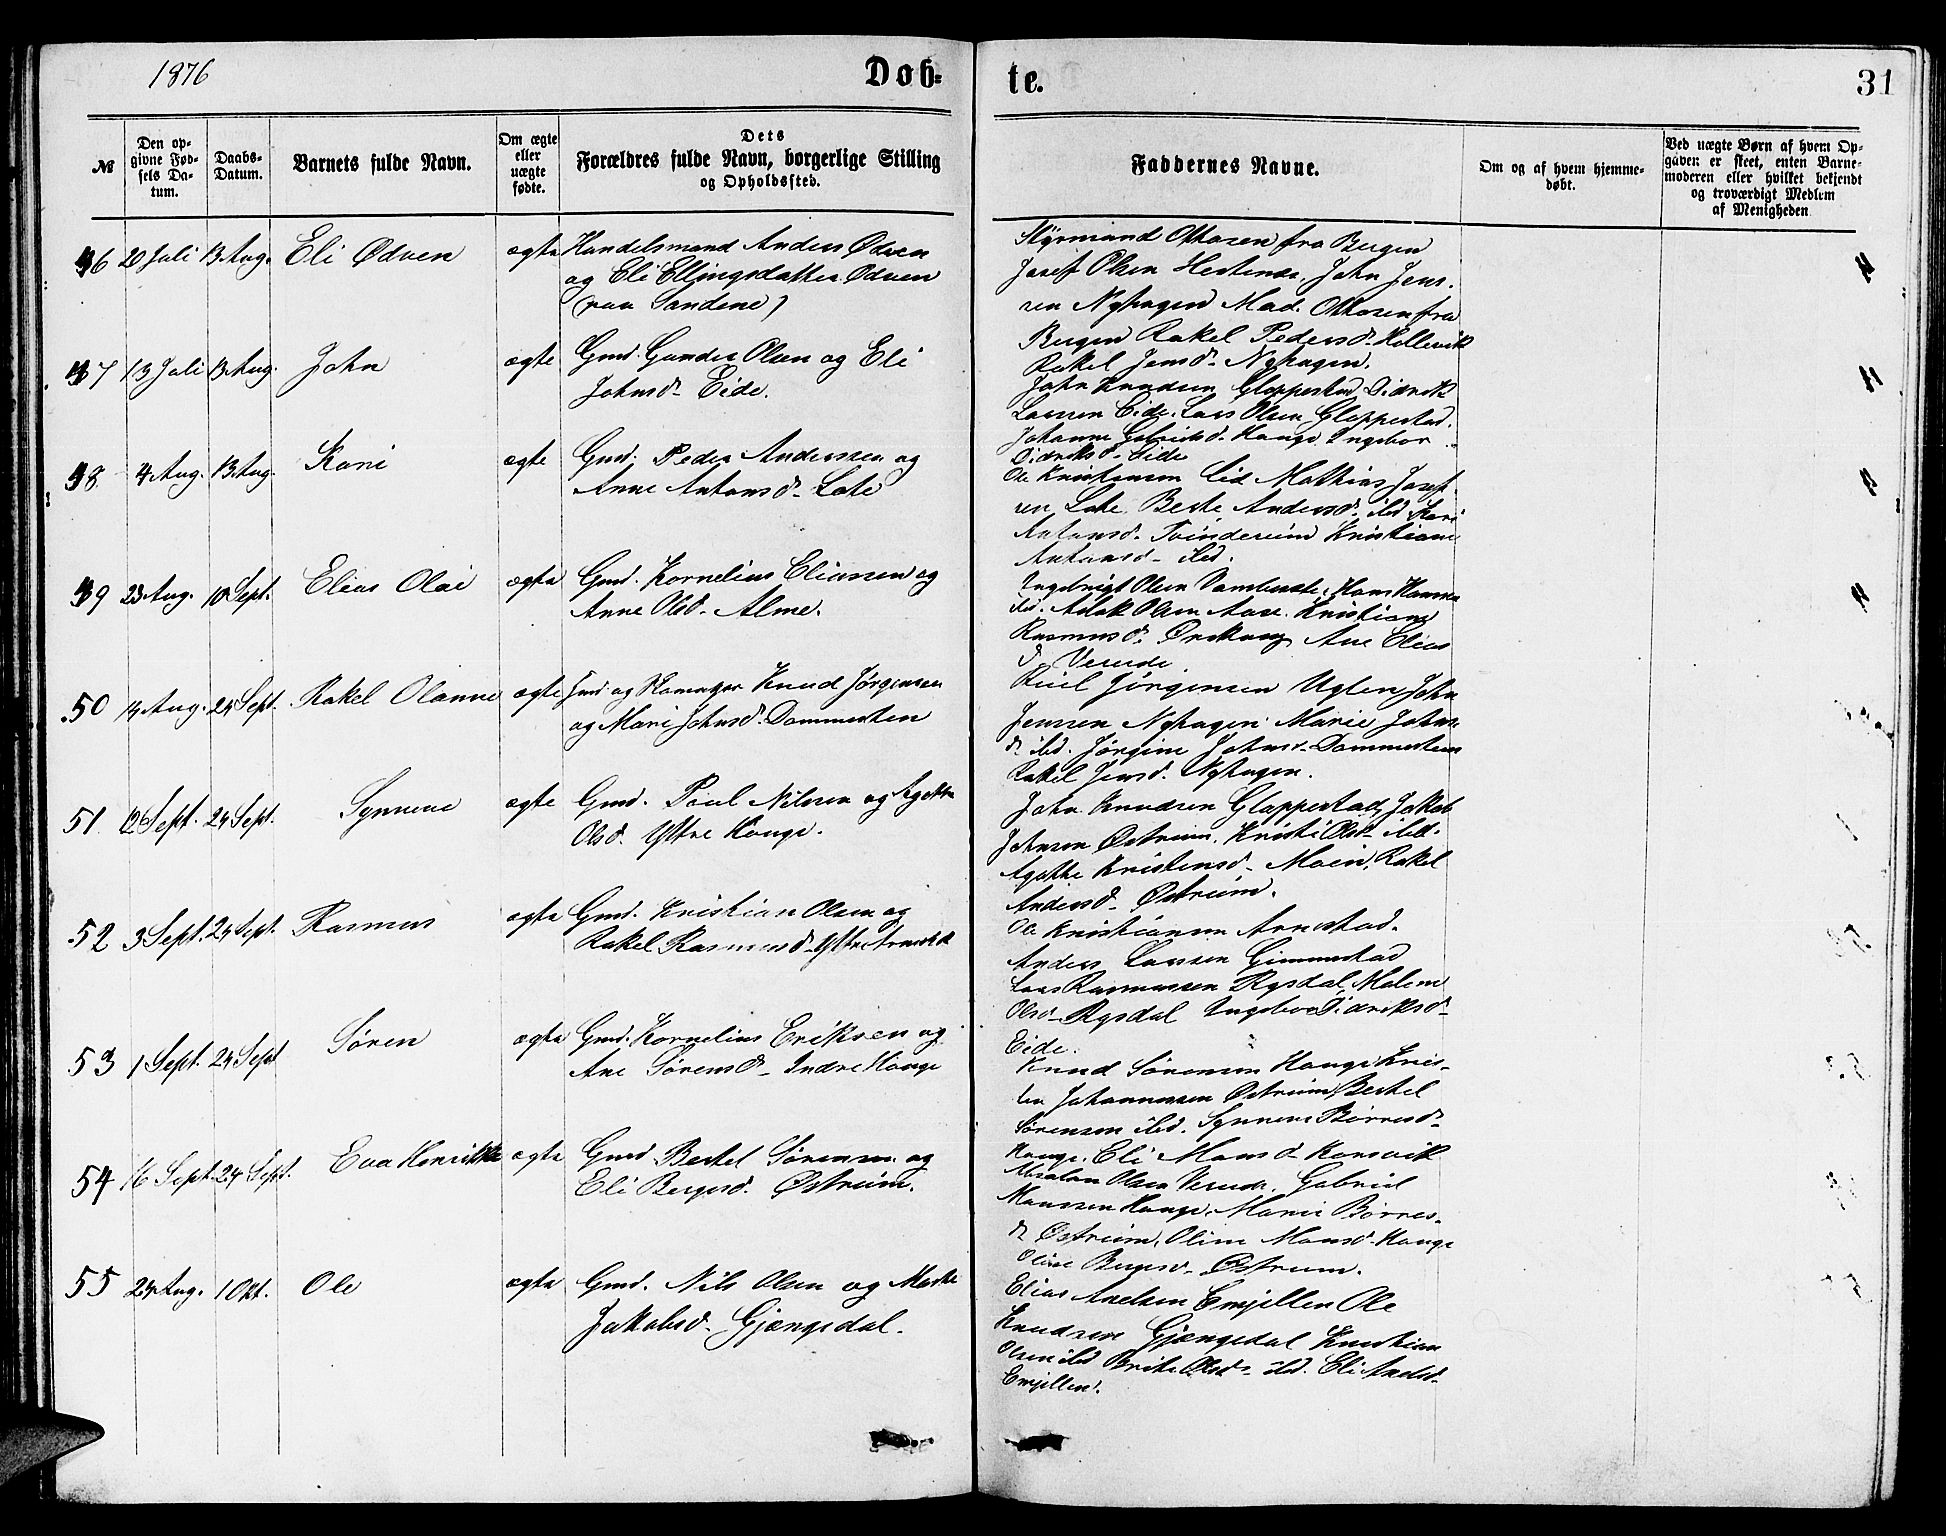 1876
Døb-
te.
31
№
Den op-
givne Fød-
sels Da-
tum.
Daabs-
Datum.
Barnets fulde Navn.
Om ægte
eller
uægte
fødte.
Dets
Forældres fulde Navn, borgerlige Stilling
og Opholdssted.
Faddernes Navne.
Om og af hvem hjemme-
døbt.
Ved uægte Børn af hvem Op-
gaven er skeet, enten Barne-
moderen eller hvilket bekjendt
og troværdigt Medlem
af Menigheden
46 20 Juli 13 Aug. Eli Ødven ægte Handelsmand Anders Ødven
og Eli Ellingsdatter Ødven
(paa Sandene)
Styrmand Ottosen fra Bergen
Josef Olsen Hestenes, John Jens-
sen Nyhagen Mad. Ottosen fra
Bergen Rakel Pedersd. Hellevik
Rakel Jensd. Nyhagen.
47 13 Juli 13 Aug. John ægte Gmd. Gunder Olsen og Eli
Johnsd. Eide.
John Knudsen Gloppestad, Didrik
Larsen Eide. Lars Olsen Gloppestad.
Johanne Gabrielsd. Hauge Ingebor
Didriksd. Eide
48 4 Aug. 13 Aug. Kari ægte Gmd. Peder Anderssen og
Anne Antonsd. Lote
Ole Kristensen Eid Mathias Josef-
sen Lote. Berte Andersd. ibd. Kari
Antonsd. Tvindereim Kristiane
Antonsd. ibd.
49 23 Aug. 10 Sept. Elias Olai ægte Gmd. Kornelius Eliassen og
Anne Olsd. Alme.
Ingebrigt Olsen Hans Hansen
ibd. Aslak Olsen Aase. Kristiane
Rasmusd. Ane Elias
d. Vereide.
50 14 Aug. 24 Sept. Rakel Olanne ægte Gmd og Skomager Knud Jørgensen
og Mari Johnsd. Dommesten
Jørgensen Uglen John
Jenssen Nyhagen. Marie Johns
d. ibd. Jørgine Johnsd. Dommesten
Rakel Jensd. Nyhagen.
51 12 Sept. 24 Sept. Synneve ægte Gmd. Poul Nilsen og Agethe
Olsd. Ytre Hauge.
John Knudsen Gloppestad, Jakob
Johnsen Østreim, Kristi Olsd. ibd.
Agethe Kristensd. Moein, Rakel
Andersd. Østreim.
52 3 Sept. 24 Sept. Rasmus ægte Gmd. Kristian Olsen og
Rakel Rasmusd. Ytre Arnestad
Ole Kristiansen Arnestad.
Anders Larssen Gimmestad
Lars Rasmussen Rysdal, Malene
Olsd. Rysdal Ingebor Didriksd.
Eide.
53 1 Sept. 24 Sept Søren ægte Gmd. Kornelius Eriksen og
Ane Sørensd. Indre Hauge
Knud Sørensen Hauge, Kris-
ten Johannessen Østreim, Bertel
Sørensen ibd. Synneve Børresd.
Hauge. Eli Monsd.
54 16 Sept. 24 Sept. Eva Henrikke ægte Gmd Bertel Sørensen og
Eli Børgesd. Østreim.
Absalon Olsen Vereide. Gabriel
Monssen Hauge, Marie Børres-
d. Østreim, Oline Monsd. Hauge
Oline Østreim.
55 24 Aug. 1 Okt. Ole ægte Gmd. Nils Olsen og
Jakobsd. Gjengedal.
Elias Axelsen Emjellen Ole
Knudsen Gjengedal Kristian
Olsen ibd Brite Olsd. ibd. Eli Axelsd.
Emjellen.